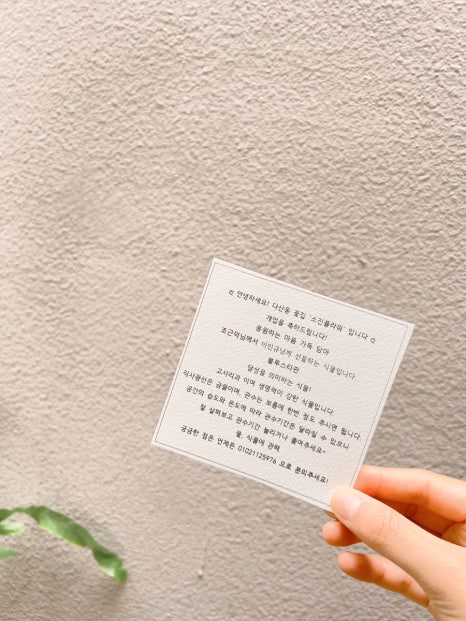 ♬ 안녕하세요! 다산동 꽃집 '소진플라워' 입니다 ♬
개업을 축하드립니다!
응원하는 마음 가득 담아
조근덕님께서 이민규님께 선물하는 식물입니다.
블루스타판
달성을 의미하는 식물!
고사리과 이며 생명력이 강한 식물입니다.
직사광선은 금물이며, 관수는 보름에 한번 정도 주시면 됩니다.
공간의 습도와 온도에 따라 관수기간은 달라질 수 있으니
잘 살펴보고 관수기간 늘리거나 줄여주세요~
꽃, 식물에 관해
궁금한 점은 언제든 01021125976 으로 문의주세요!